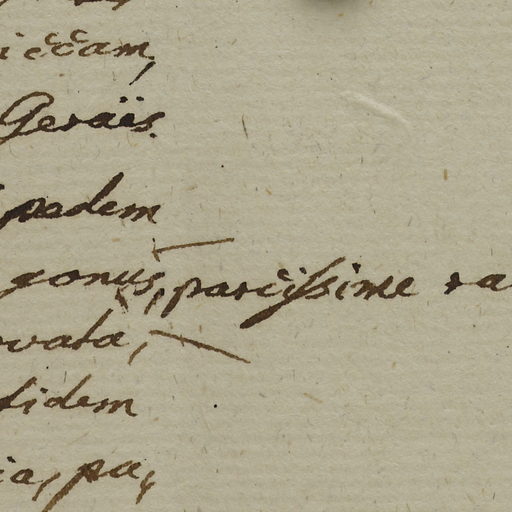 Gerais.
padem
gonus, parcissime ra
rvata,
tidem
ia, pa,